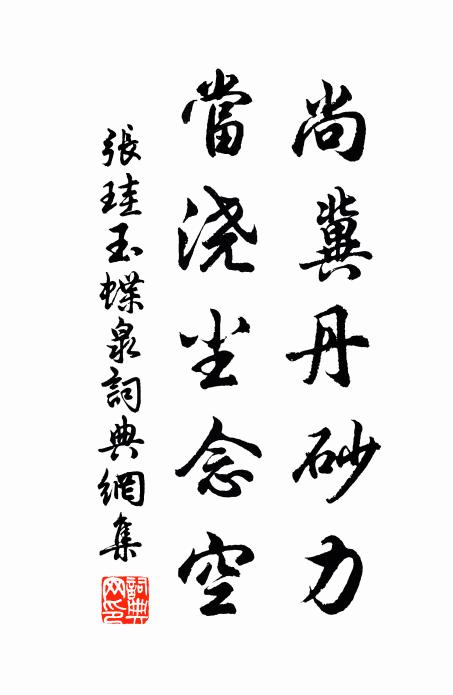 尚冀丹砂力
當浇尘念空
張珪玉蝶泉詞典網集
詞典网印